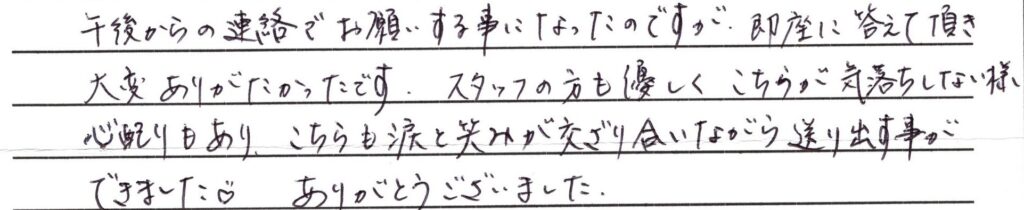 午後からの連絡でお願いする事になったのですが、即座に答えて頂き
大変ありがたかったです. スタッフの方も優しく こちらが気落ちしない様、
心配りもあり、こちらも涙と笑みが交ざり合いながら送り出す事が
できました♡ ありがとうございました.